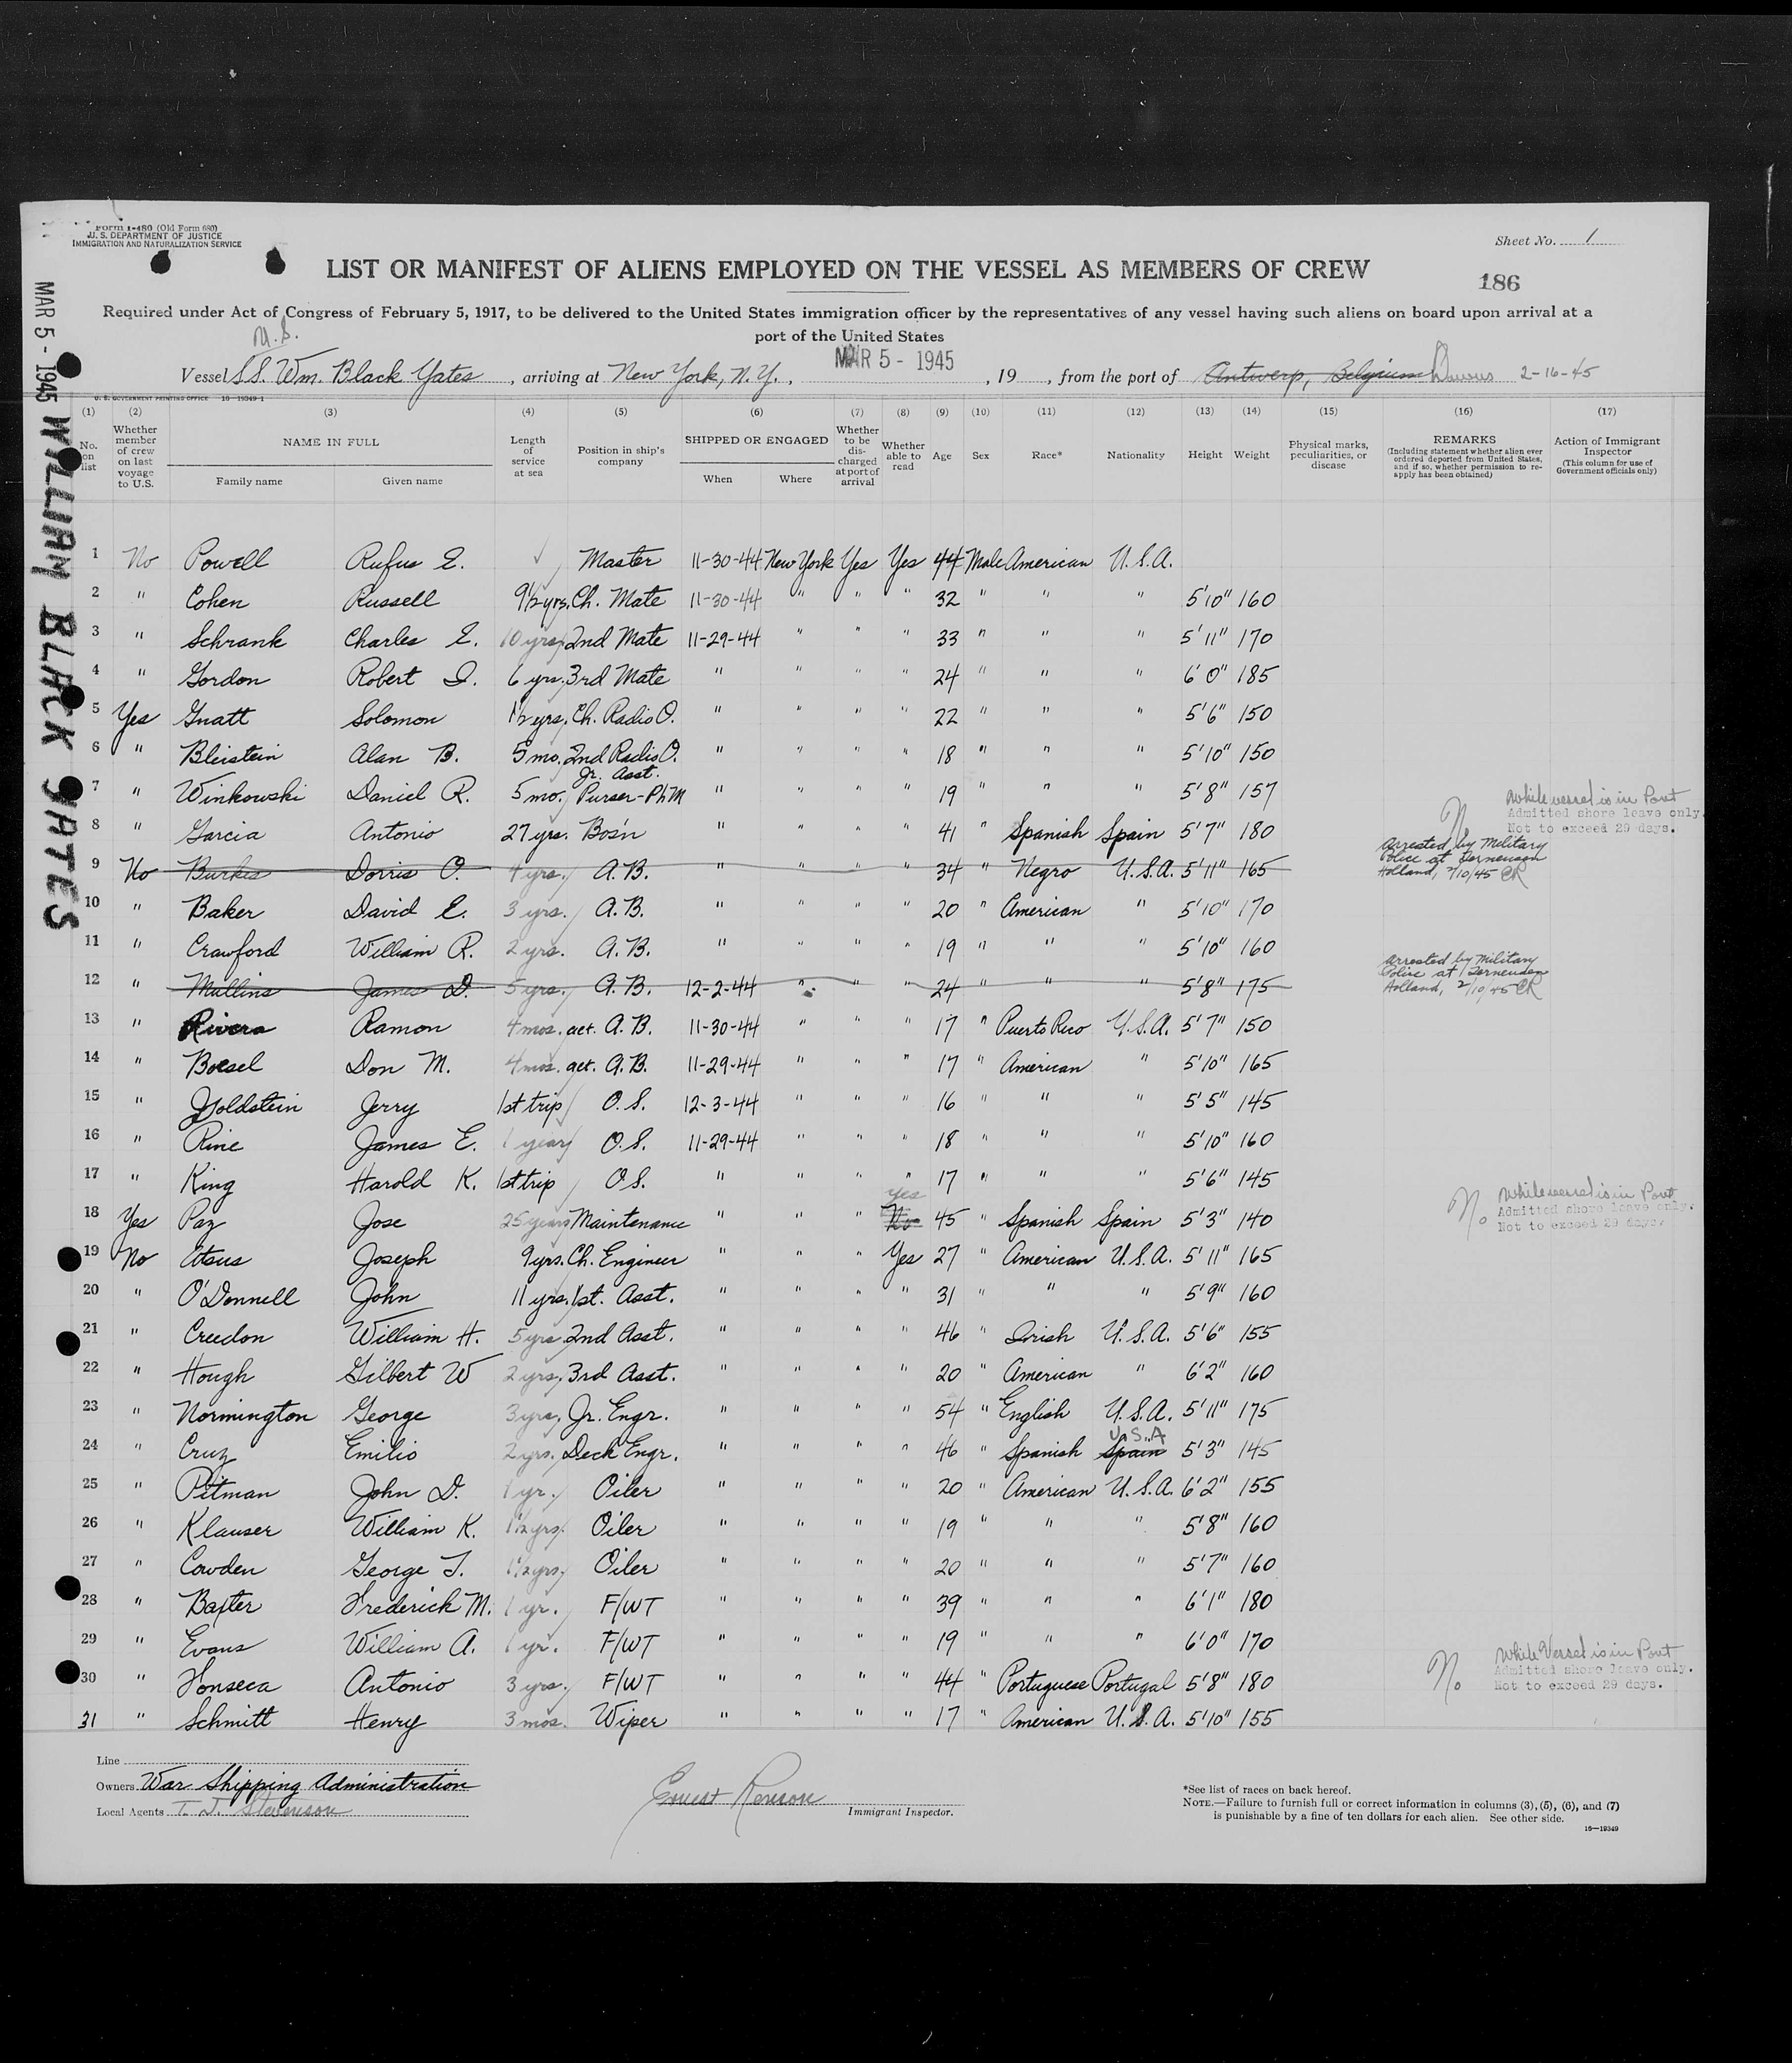 Form I-480 (Old Form 680)
U. S. DEPARTMENT OF JUSTICE
IMMIGRATION AND NATURALIZATION SERVICE
Sheet No. 1
LIST OR MANIFEST OF ALIENS EMPLOYED ON THE VESSEL AS MEMBERS OF CREW
186
Required under Act of Congress of February 5, 1917, to be delivered to the United States immigration officer by the representatives of any vessel having such aliens on board upon arrival at a
port of the United States
M.S.
Vessel SS. Wm. Black Yates, arriving at New York, N.Y., MAR 5 - 1945, 19, from the port of Antwerp, Belgium 2-16-45
MAR 5 - 1945 WILLIAM BLACK YATES
U. S. GOVERNMENT PRINTING OFFICE 16-19349-1
(1) (2) (3) (4) (5) (6) (7) (8) (9) (10) (11) (12) (13) (14) (15) (16) (17)
No. on list
Whether member of crew on last voyage to U.S.
NAME IN FULL
Family name
Given name
Length of service at sea
Position in ship's company
SHIPPED OR ENGAGED
When
Where
Whether to be discharged at port of arrival
Whether able to read
Age
Sex
Race*
Nationality
Height
Weight
Physical marks, peculiarities, or disease
REMARKS
(Including statement whether alien ever ordered deported from United States, and if so, whether permission to reapply has been obtained)
Action of Immigrant Inspector
(This column for use of Government officials only)
1 No Powell Rufus E. ✓ Master 11-30-44 New York Yes Yes 44 Male American U.S.A.
2 " Cohen Russell 9½ yrs. Ch. Mate 11-30-44 " " " 32 " " " 5'10" 160
3 " Schrank Charles E. 10 yrs. 2nd Mate 11-29-44 " " " 33 " " " 5'11" 170
4 " Gordon Robert I. 6 yrs. 3rd Mate " " " " 24 " " " 6'0" 185
5 Yes Gnatt Solomon 1½ yrs. Ch. Radio O. " " " " 22 " " " 5'6" 150
6 " Bleistein Alan B. 5 mo. 2nd Radio O. " " " " 18 " " " 5'10" 150
7 " Winkowski Daniel R. 5 mo. Jr. Asst. Purser-PhM " " " " 19 " " " 5'8" 157
8 " Garcia Antonio 27 yrs. Bos'n " " " " 41 " Spanish Spain 5'7" 180 No While vessel is in Port Admitted shore leave only. Not to exceed 29 days.
9 No Burkes Dorris O. 4 yrs. A.B. " " " " 34 " Negro U.S.A. 5'11" 165 Arrested by Military Police at Terneuzen Holland, 2/10/45 ER
10 " Baker David E. 3 yrs. A.B. " " " " 20 " American " 5'10" 170
11 " Crawford William R. 2 yrs. A.B. " " " " 19 " " " 5'10" 160
12 " Mullins James D. 5 yrs. A.B. 12-2-44 " " " 24 " " " 5'8" 175 Arrested by Military Police at Terneuzen Holland, 2/10/45 ER
13 " Rivera Ramon 4 mos. act. A.B. 11-30-44 " " " 17 " Puerto Rico U.S.A. 5'7" 150
14 " Boesel Don M. 4 mos. act. A.B. 11-29-44 " " " 17 " American " 5'10" 165
15 " Goldstein Jerry 1st trip O.S. 12-3-44 " " " 16 " " " 5'5" 145
16 " Rine James E. 1 year O.S. 11-29-44 " " " 18 " " " 5'10" 160
17 " King Harold K. 1st trip O.S. " " " " 17 " " " 5'6" 145
18 Yes Paz Jose 25 years Maintenance " " " No yes 45 " Spanish Spain 5'3" 140 No While vessel is in Port Admitted shore leave only. Not to exceed 29 days.
19 No Atsus Joseph 9 yrs. Ch. Engineer " " " Yes 27 " American U.S.A. 5'11" 165
20 " O'Donnell John 11 yrs. 1st. Asst. " " " " 31 " " " 5'9" 160
21 " Creedon William H. 5 yrs 2nd Asst. " " " " 46 " Irish U.S.A. 5'6" 155
22 " Hough Gilbert W 2 yrs. 3rd Asst. " " " " 20 " American " 6'2" 160
23 " Normington George 3 yrs. Jr. Engr. " " " " 54 " English U.S.A. 5'11" 175
24 " Cruz Emilio 2 yrs. Deck Engr. " " " " 46 " Spanish Spain U.S.A 5'3" 145
25 " Pitman John D. 1 yr. Oiler " " " " 20 " American U.S.A. 6'2" 155
26 " Klauser William K. 1½ yrs. Oiler " " " " 19 " " " 5'8" 160
27 " Cowden George T. 1½ yrs. Oiler " " " " 20 " " " 5'7" 160
28 " Baxter Frederick M. 1 yr. F/WT " " " " 39 " " " 6'1" 180
29 " Evans William A. 1 yr. F/WT " " " " 19 " " " 6'0" 170
30 " Fonseca Antonio 3 yrs. F/WT " " " " 44 " Portuguese Portugal 5'8" 180 No While Vessel is in Port Admitted shore leave only. Not to exceed 29 days.
31 " Schmitt Henry 3 mos. Wiper " " " " 17 " American U.S.A. 5'10" 155
Line
Owners War Shipping Administration
Local Agents T. J. Stevenson
Ernest Renson
Immigrant Inspector.
*See list of races on back hereof.
NOTE.—Failure to furnish full or correct information in columns (3), (5), (6), and (7)
is punishable by a fine of ten dollars for each alien. See other side.
16—19349